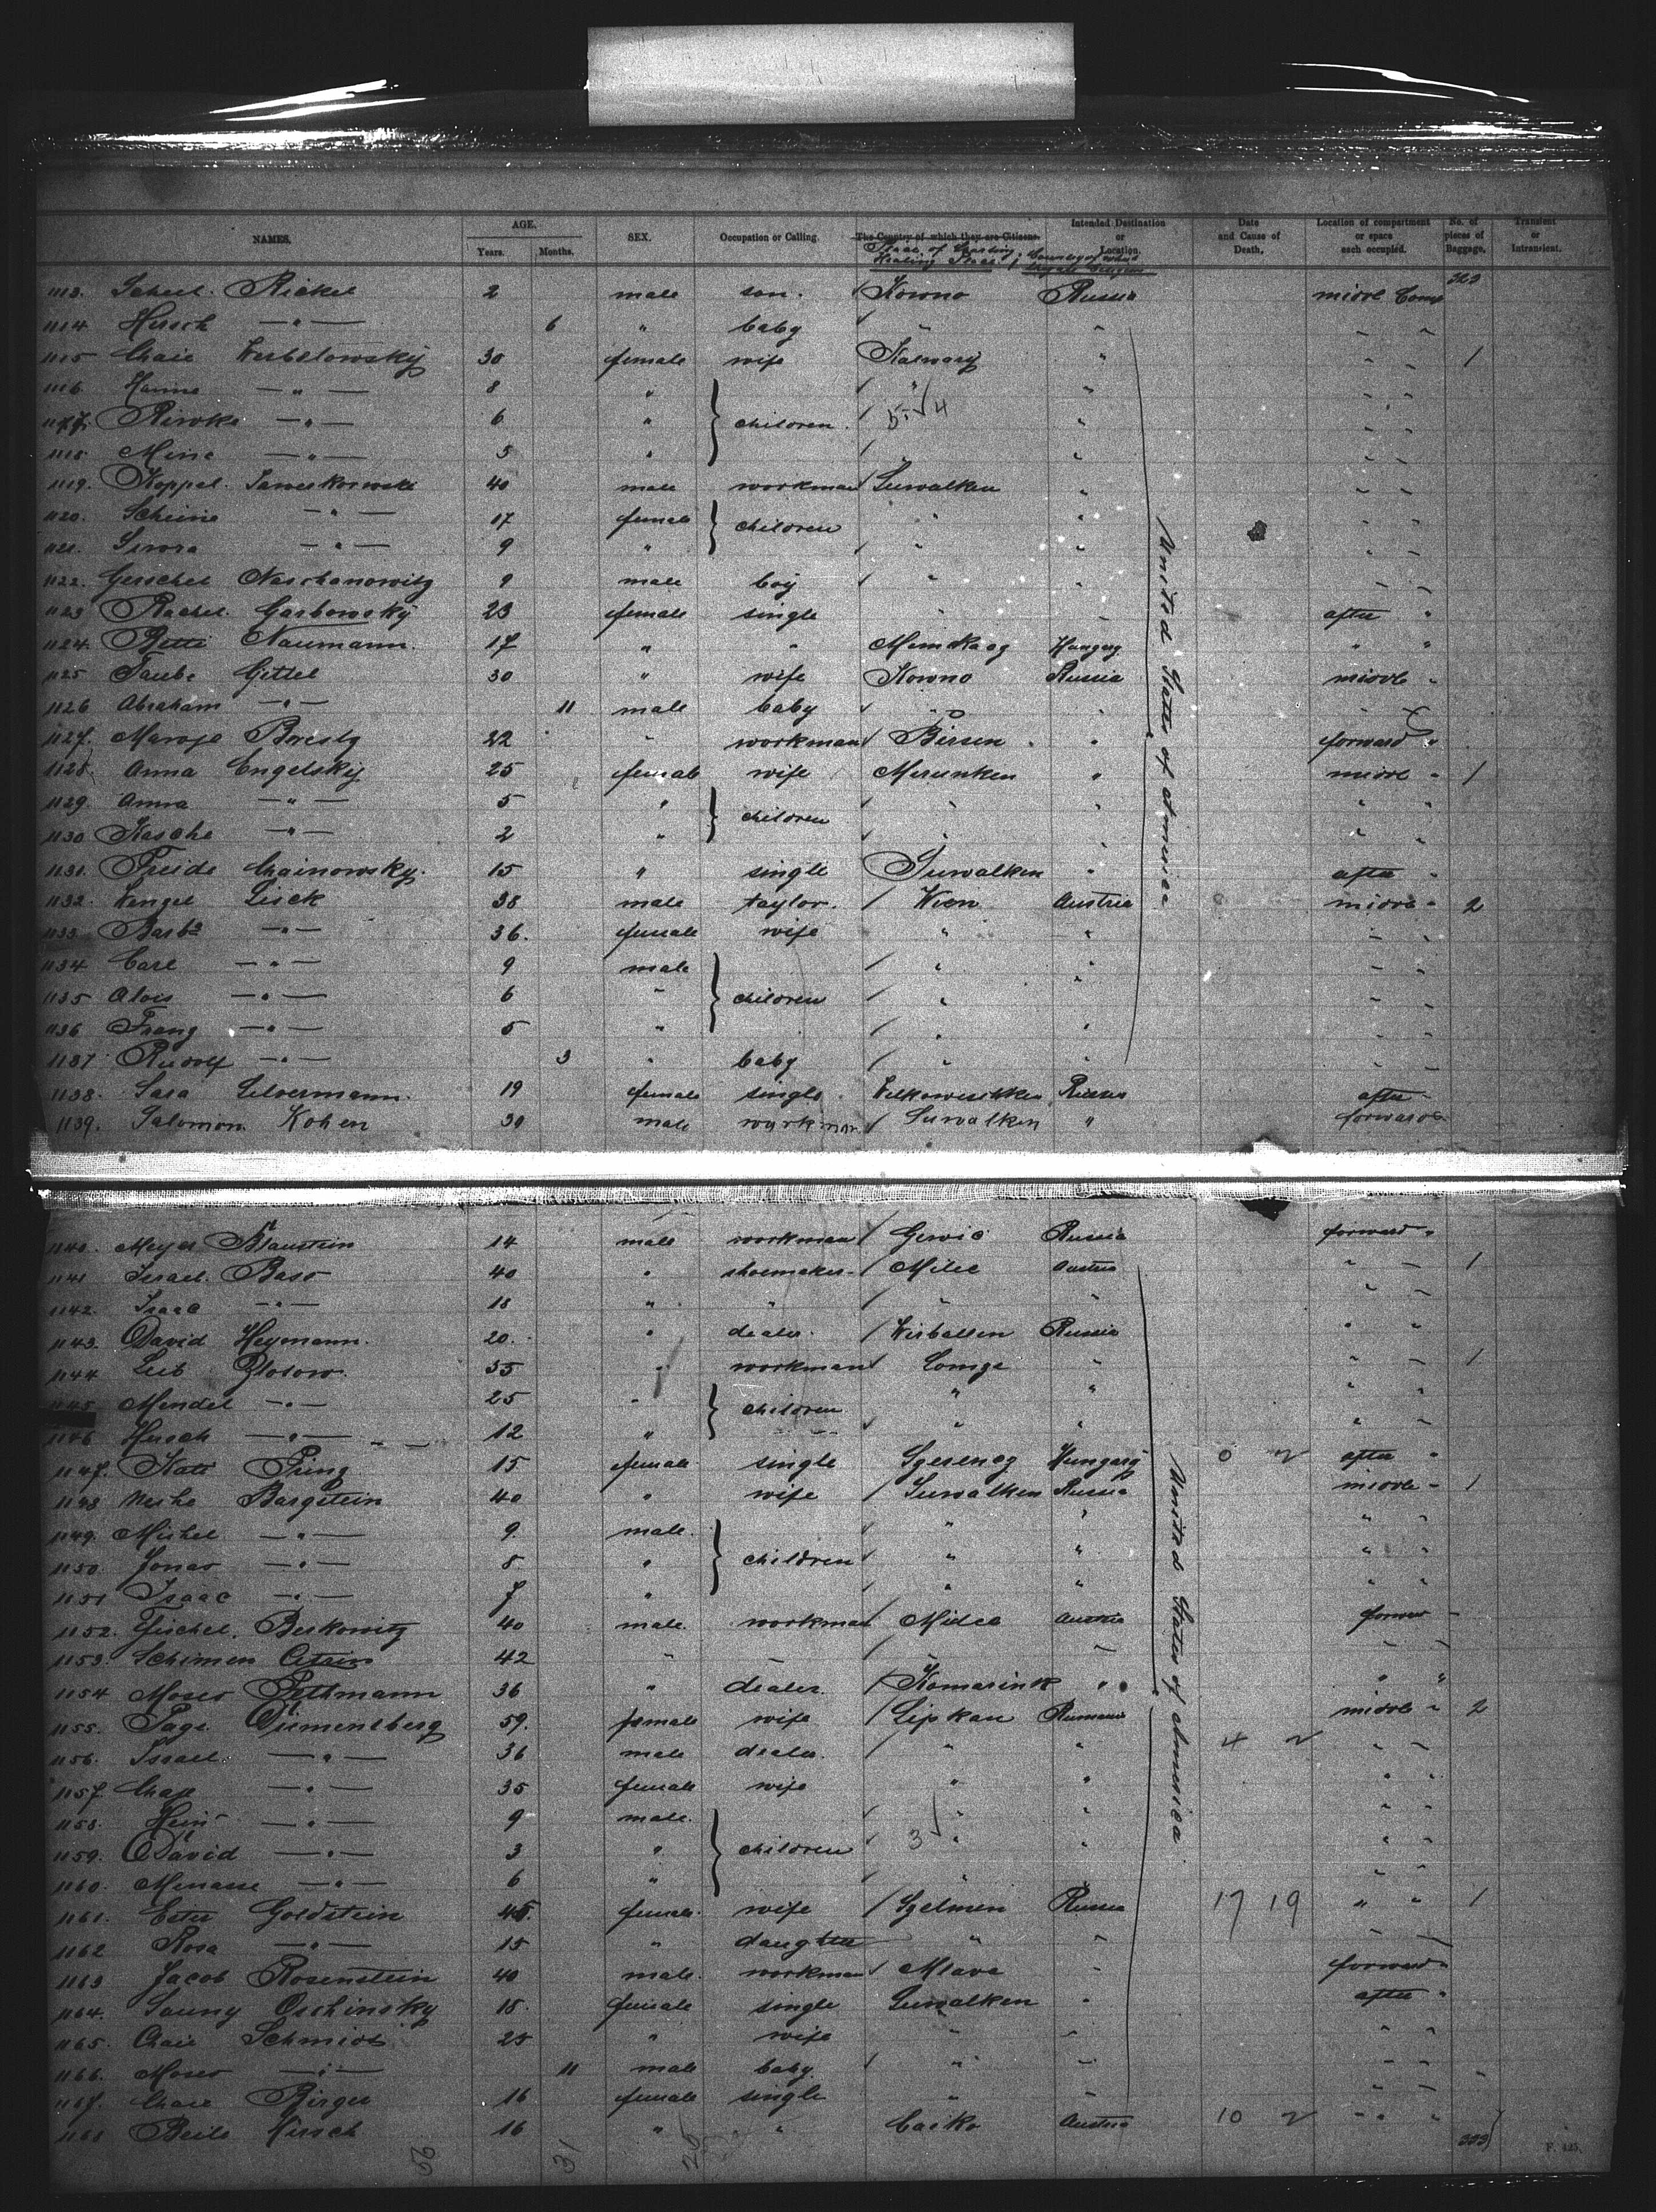 NAMES. AGE. Years. Months. SEX. Occupation or Calling. The Country of which they are Citizens. Intended Destination or Location. Date and Cause of Death. Location of compartment or space each occupied. No. of pieces of Baggage. Transient or Intransient.
Place of Starting; Country of which
323
1113. Scheel Rickel 2 male son. Kowno Russia middl Comp
1114 Hirsch —"— 6 " baby " " " "
1115 Chaie Werbelowsky 30 female wife Kalwary " " " 1
1116 Hanne —"— 8 " " " " "
1117. Riwke —"— 6 " children. 5 4 " " "
1118. Mine —"— 5 " " " " "
1119. Koppel 40 male workman Suwalken " " "
1120. Scheine —"— 17 female children " " " "
1121. —"— 9 " " " " "
1122. Gerschel Naschanowitz 9 male boy " " " "
1123 Rachel Garbowsky 23 female single " " after "
1124. Betti Naumann. 17 " " Hungary " "
1125 Taube Gittel 30 " wife Kowno Russia middle "
1126 Abraham —"— 11 male baby " " " "
1127. 22 " workman Birsen " forward "
1128. Anna Engelsky 25 female wife " middl " 1
1129. Anna —"— 5 " children " " " "
1130 Kasche —"— 2 " " " " "
1131. Freide Chainowsky. 15 " single Suwalken " after "
1132. Wenzel Lisck 38 male taylor. Wien Austria middle " 2
1133 Barba —"— 36. female wife " " " "
1134 Carl —"— 9 male " " " "
1135 Alois —"— 6 " children " " " "
1136 Franz —"— 5 " " " " "
1137 Rudolf —"— 3 " baby " " " "
1138. Sara Silvermann. 19 female single. Russia after "
1139. Salomon Kohen 30 male workman Suwalken " forward "
United States of America
1140. Meyer Blaustein 14 male workman Russia forward "
1141 Israel Bass 40 " shoemaker. Milec Austria " " 1
1142. Isaac —"— 18 " " " " " "
1143. David Heymann. 20. " dealer. Wirballen Russia " "
1144 Leib 55 " workman Lomza " " " 1
1145 Mendel —"— 25 " children " " " "
1146 Hirsch —"— 12 " " " " "
1147. Kati Pring 15 female single Hungary 0 2 after "
1148 Bargstein 40 " wife Suwalken Russia middle " 1
1149. Michel —"— 9. male. " " " "
1150. Jonas —"— 8 " children " " " "
1151 Isaac —"— 7 " " " " "
1152. Fischel. Berkowitz 40 male. workman Austria "
1153. Schimen 42 " " " " " "
1154 Moses 36 " dealer. Komarink " " "
1155. 59. female wife Lipkau 4 2 middle " 2
1156. Israel. —"— 36 male dealer. " " " "
1157. —"— 35 female wife " " " "
1158. —"— 9 male. " " " "
1159. David —"— 3 " children 3 " " " "
1160. Menasse —"— 6 " " " " "
1161. Ester Goldstein 45. female. wife Russia 17 19 " " 1
1162 Rosa —"— 15 " daughter " " " "
1163 Jacob Rosenstein 40 male. workman Mlava " forward "
1164. Oschinsky 18. female single Suwalken " after "
1165. Chaie Schmidt 25 " wife " " " "
1166. Moses —"— 11 male baby. " " " "
1167. Chaie Birger 16 female single " " " "
1168 Beile Hirsch 16 " " Austria 10 2 " "
United States of America
31
333
F. 425.